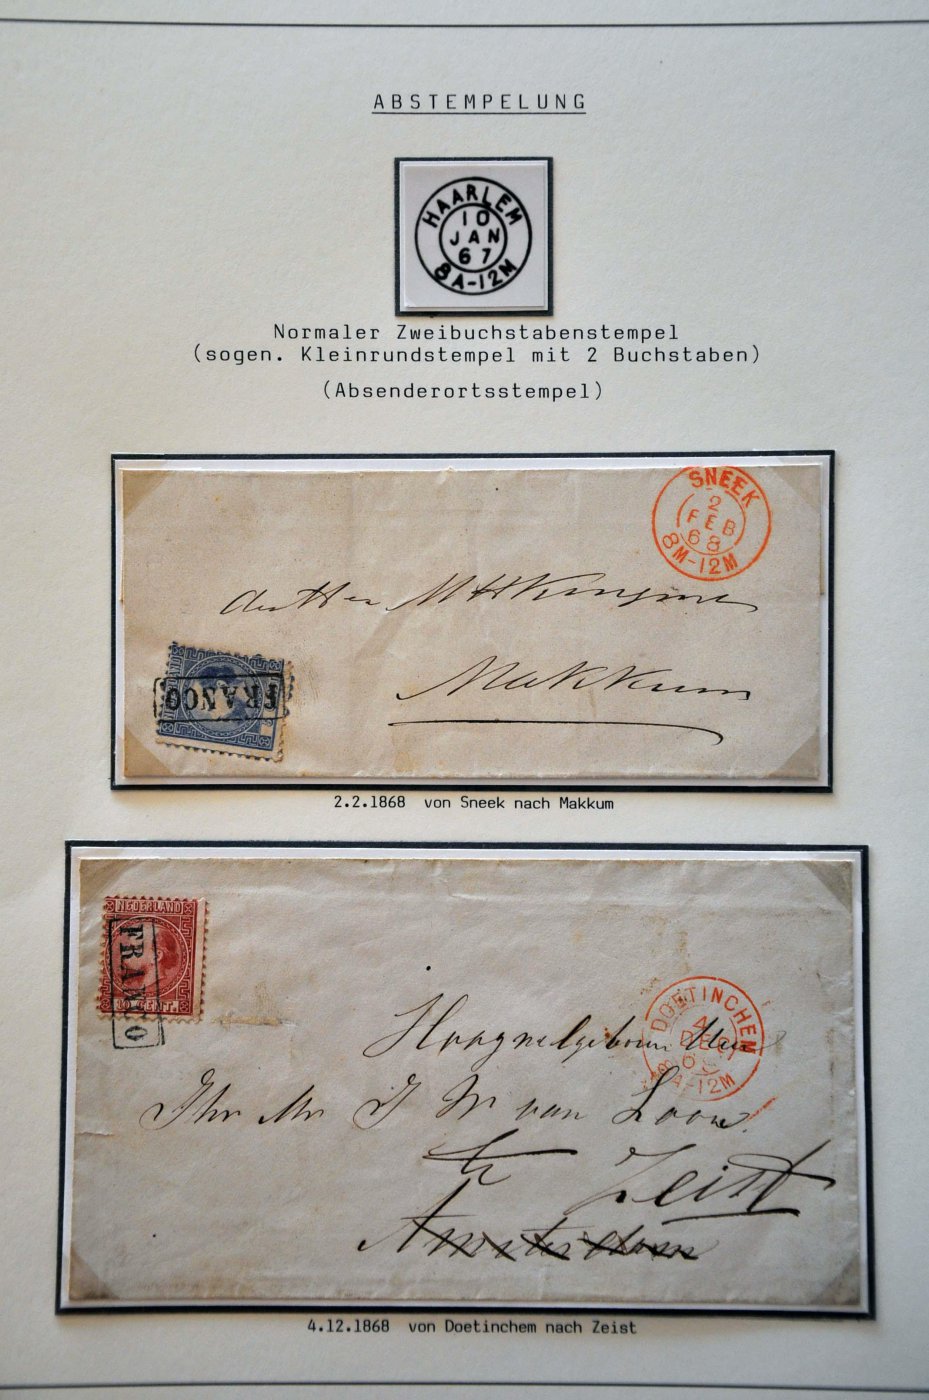 ABSTEMPELUNG
HAARLEM
10
JAN
67
8A-12M
Normaler Zweibuchstabenstempel
(sogen. Kleinrundstempel mit 2 Buchstaben)
(Absenderortsstempel)
SNEEK
2
FEB
68
8M-12M
Makkum
FRANCO
2.2.1868 von Sneek nach Makkum
NEDERLAND
FRANCO
10 CENT.
DOETINCHEM
4
DEC
A-12M
Hoogwelgeboren
J W van Loon
te Zeist
Amsterdam
4.12.1868 von Doetinchem nach Zeist